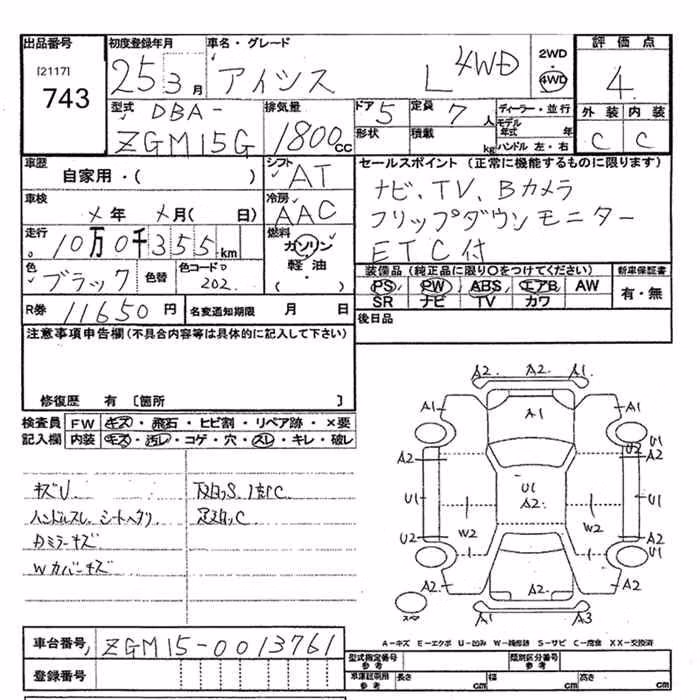 出品番号 初度登録年月 車名・グレード 評価点
[2117]
743
25 3月 アイシス L 4WD
2WD
・
4WD
4
型式 DBA-
ZGM15G
排気量
1800cc
ドア 5 定員 7人 ディーラー・並行
モデル年式 年
形状 積載 kg ハンドル 左・右
外装 内装
C C
車歴
自家用・( )
シフト
AT
セールスポイント (正常に機能するものに限ります)
ナビ、TV、Bカメラ
フリップダウンモニター
ETC付
車検
メ年 メ月( 日)
冷房
AAC
走行
10万0千355km
燃料
ガソリン
軽油
・( )
色 ブラック 色替 色コードNo 202
装備品 (純正品に限り○をつけてください) 新車保証書
PS PW ABS エアB AW
SR ナビ TV カワ
有・無
R券 11650円 名変通知期限 月 日
後日品
注意事項申告欄(不具合内容等は具体的に記入して下さい)
修復歴 有 [箇所 ]
検査員 FW キズ・飛石・ヒビ割・リペア跡・×要
記入欄 内装 キズ・汚レ・コゲ・穴・スレ・キレ・破レ
キズU
ハンドルスレ、シートヘタリ
Dミラーキズ
Wカバーキズ
A2 A2 A1
A1 A1 A1
U1
A2 U2 A2
U1 U1 A2 U1
W2 W2
U2 A2
A2 A2 A2
スペア A1 A3
A-キズ E-エクボ U-凹み W-補修跡 S-サビ C-腐食 XX-交換済
車台番号 ZGM15-0013761
登録番号
型式指定番号 参考 類別区分番号 参考
車庫証明用 参考 長さ cm 幅 cm 高さ cm